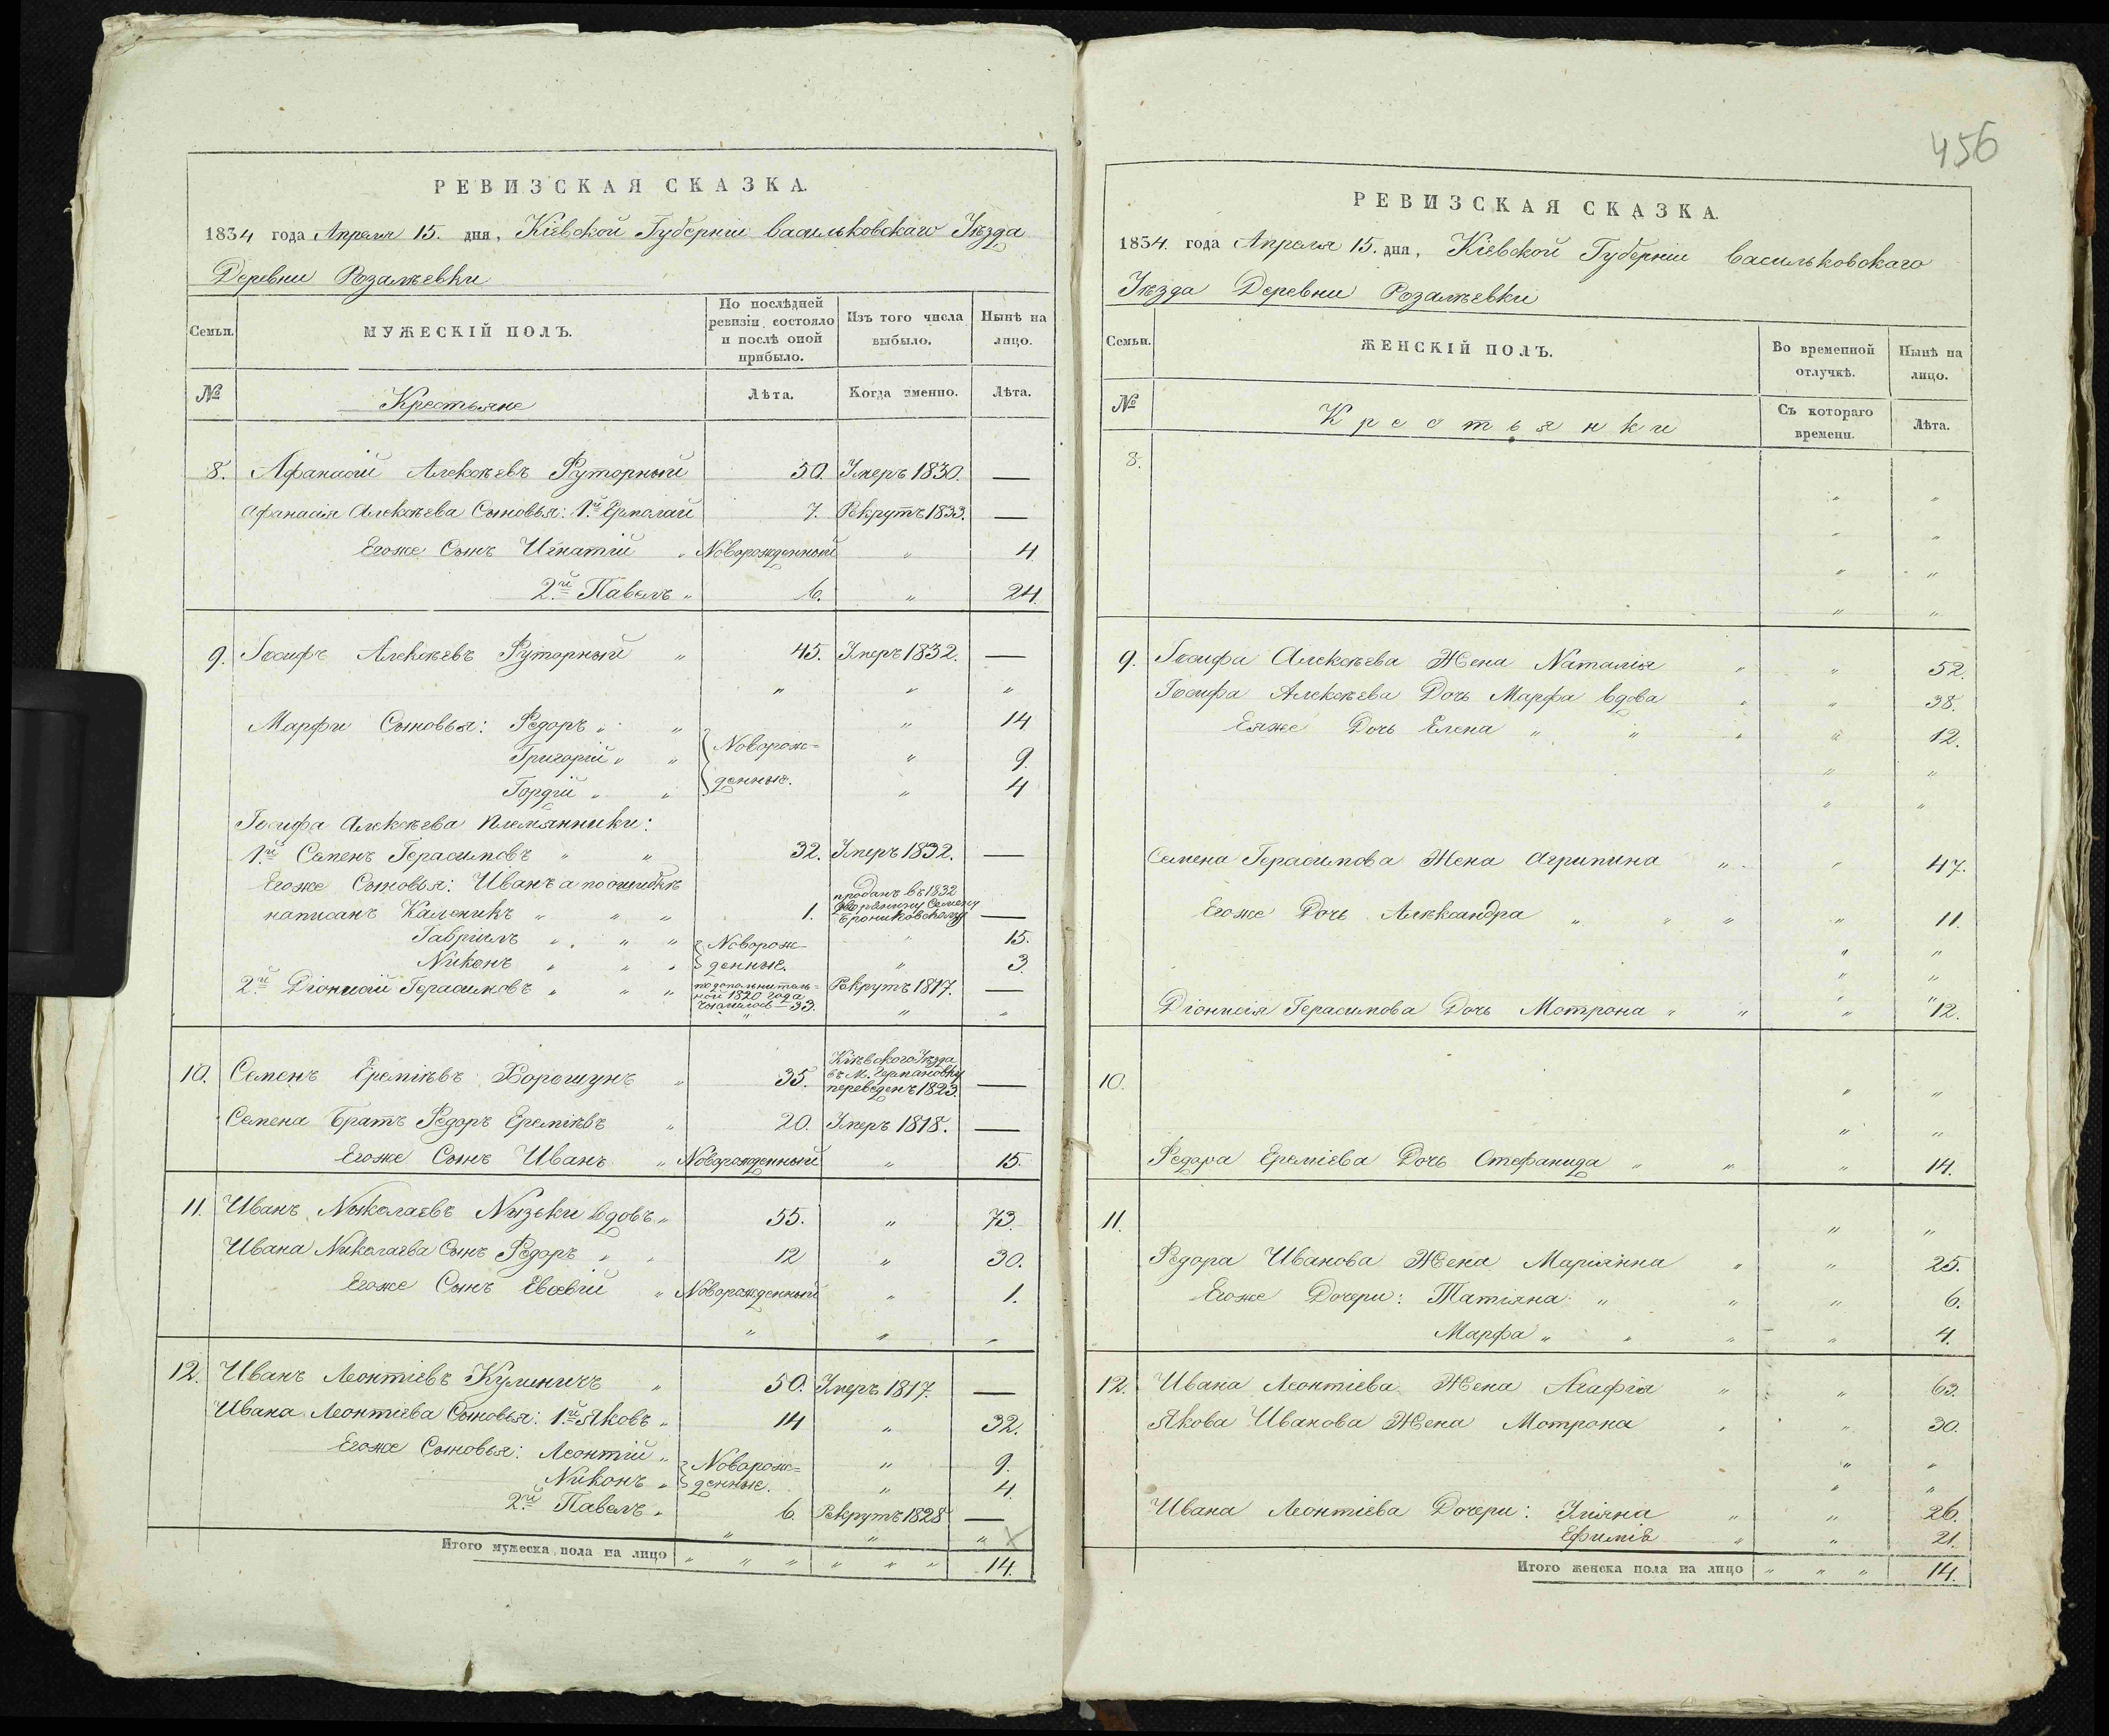 РЕВИЗСКАЯ СКАЗКА.
1834 года Апреля 15. дня, Кіевской Губерніи Васильковскаго Уѣзда
Деревни Розалѣевки
Семьи.
МУЖЕСКІЙ ПОЛЪ.
По послѣдней ревизіи состояло и послѣ оной прибыло.
Изъ того числа выбыло.
Нынѣ на лицо.
№
Крестьяне
Лѣта.
Когда именно.
Лѣта.
8. Афанасій Алексѣевъ Руторный 50. Умеръ 1830. —
Афанасія Алексѣева Сыновья: 1.й Ермолай 7. Рекрутъ 1833. —
Егоже Сынъ Игнатій " Новорожденный " 4
2.й Павелъ " 6. " 24.
9. Іосифъ Алексѣевъ Руторный " 45. Умеръ 1832. —
" " "
Марфи Сыновья: Ѳедоръ " " " 14
Григорій " " Новорож= " 9.
Гордій " " денные. " 4
Іосифа Алексѣева Племянники:
1.й Семенъ Герасимовъ " " 32. Умеръ 1832. —
Егоже Сыновья: Иванъ а по ошибкѣ
написанъ Каленикъ " " " 1. проданъ въ 1832 дворянину Семену Брониковскому —
Гавріилъ " " " Новорож= " 15.
Никонъ " " " денные. " 3.
2.й Діонисій Герасимовъ " " " по дополнитель=ной 1820 года числился—33. Рекрутъ 1817. —
" " "
10. Семенъ Еремѣевъ Хорошунъ " 35. Кіевского Уѣзда въ М. Германовку переведенъ 1823. —
Семена Братъ Ѳедоръ Еремѣевъ " 20. Умеръ 1818. —
Егоже Сынъ Иванъ " Новорожденный " 15.
11. Иванъ Николаевъ Низьки вдовъ " 55. " 73.
Ивана Николаева Сынъ Ѳедоръ " " 12 " 30.
Егоже Сынъ Евсевій " Новорожденный " 1.
" " "
12. Иванъ Леонтіевъ Кулиничъ " 50. Умеръ 1817. —
Ивана Леонтіева Сыновья: 1.й Яковъ " 14 " 32.
Егоже Сыновья: Леонтій " Новорож= " 9.
Никонъ " денные. " 4.
2.й Павелъ " 6. Рекрутъ 1828 —
" " "
Итого мужеска пола на лицо " " " " " " 14.
456
РЕВИЗСКАЯ СКАЗКА.
1834. года Апреля 15. дня, Кіевской Губерніи Васильковскаго
Уѣзда Деревни Розалѣевки
Семьи.
ЖЕНСКІЙ ПОЛЪ.
Во временной отлучкѣ.
Нынѣ на лицо.
№
Крестьянки
Съ котораго времени.
Лѣта.
8.
" "
" "
" "
" "
9. Іосифа Алексѣева Жена Наталія " " 52.
Іосифа Алексѣева Дочь Марфа вдова " " 38.
Еяже Дочь Елена " " " " 12.
" "
" "
Семена Герасимова Жена Агрипина " " 47.
Егоже Дочь Александра " " " " 11.
" "
" "
" "
Діонисія Герасимова Дочь Мотрона " " " 12.
10.
" "
" "
Ѳедора Еремѣева Дочь Стефанида " " " 14.
11. " "
Ѳедора Иванова Жена Маріянна " " 25.
Егоже Дочери: Татіяна " " " 6.
Марфа " " " " 4.
12. Ивана Леонтіева Жена Агафія " " 63.
Якова Иванова Жена Мотрона " " 30.
" "
" "
Ивана Леонтіева Дочери: Уліяна " " 26.
Ефимія " " 21.
Итого женска пола на лицо " " " 14.